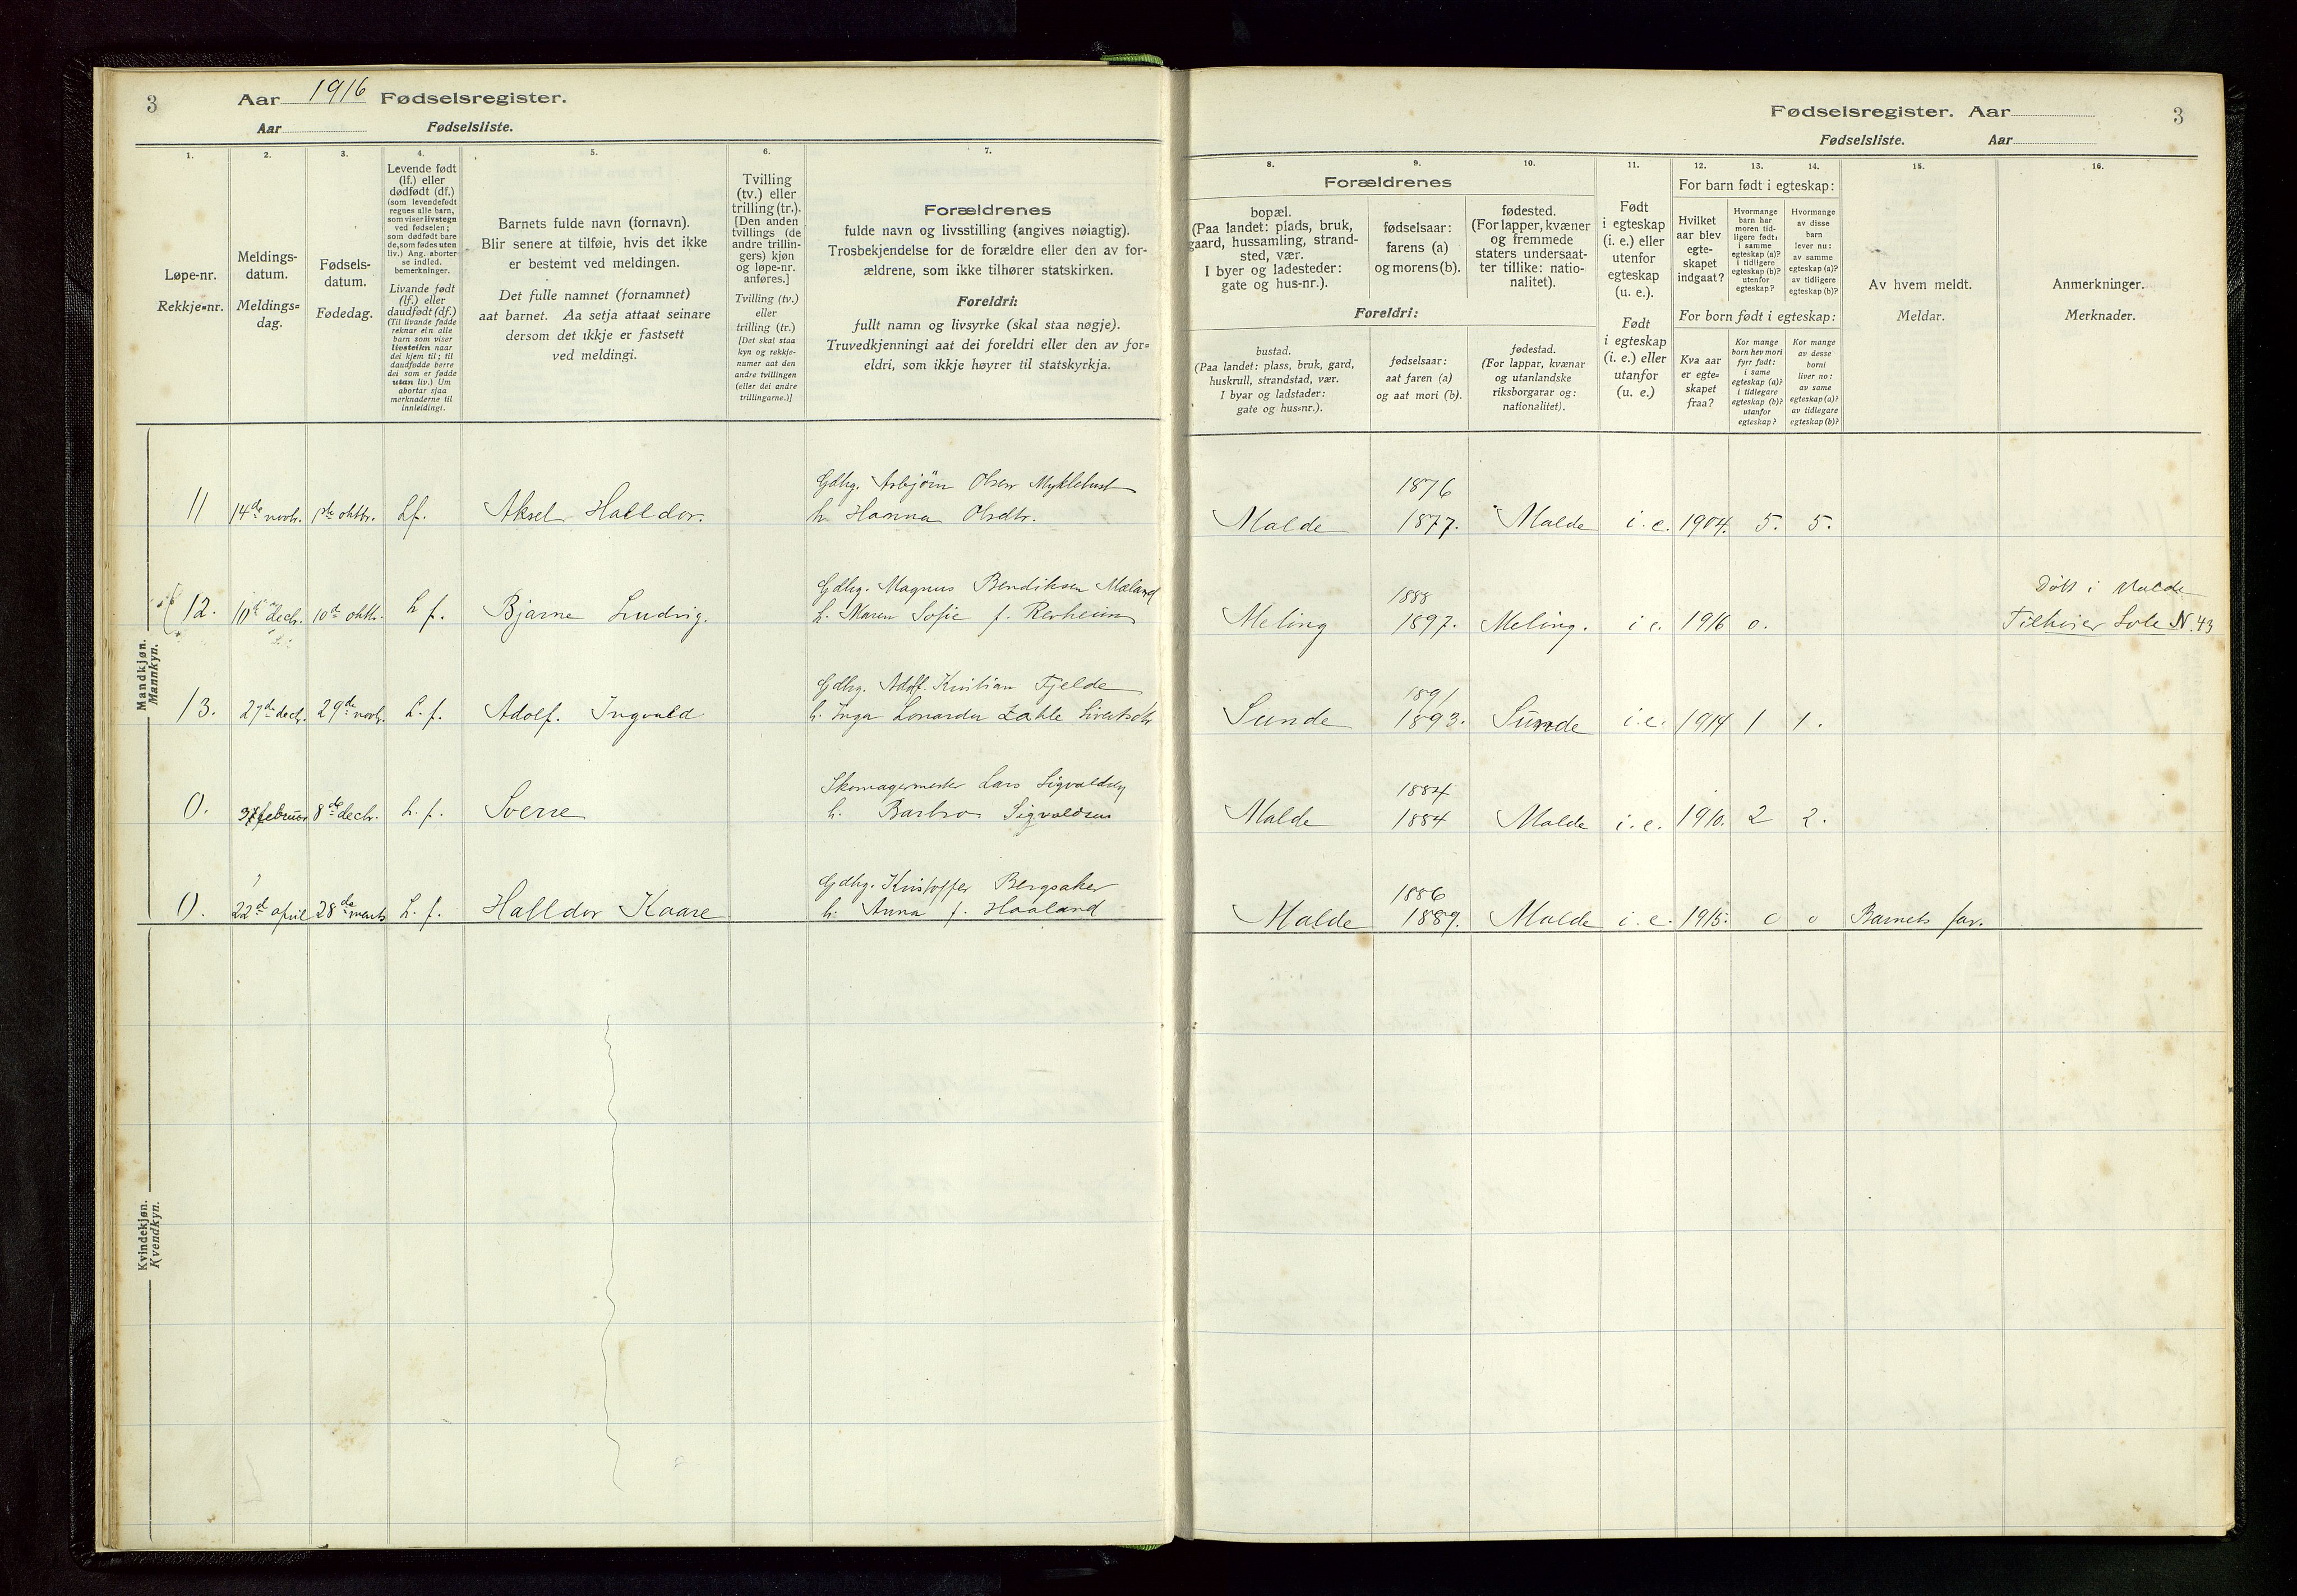 3
Aar 1916 Fødselsregister.
Aar Fødselsliste.
1.
2.
3.
4.
5.
6.
7.
Løpe-nr.
Rekkje=nr.
Meldings-
datum.
Meldings=
dag.
Fødsels-
datum.
Fødedag.
Levende født
(lf.) eller
dødfødt (df.)
(som levendefødt
regnes alle barn,
som viser livstegn
ved fødselen;
som dødfødt bare
de, som fødes uten
liv.) Ang. aborter
se indled.
bemerkninger.
Livande født
(lf.) eller
daudfødt (df.)
(Til livande fødde
reknar ein alle
barn som viser
livsteikn naar
dei kjem til; til
daudfødde berre
dei som er fødde
utan liv.) Um
abortar sjaa
merknaderne til
innleidingi.
Barnets fulde navn (fornavn).
Blir senere at tilføie, hvis det ikke
er bestemt ved meldingen.
Det fulle namnet (fornamnet)
aat barnet. Aa setja attaat seinare
dersom det ikkje er fastsett
ved meldingi.
Tvilling
(tv.) eller
trilling (tr.).
[Den anden
tvillings (de
andre trillin-
gers) kjøn
og løpe-nr.
anføres.]
Tvilling (tv.)
eller
trilling (tr.)
[Det skal staa
kyn og rekkje-
numer aat den
andre tvillingen
(eller dei andre
trillingarne.)]
Forældrenes
fulde navn og livsstilling (angives nøiagtig).
Trosbekjendelse for de forældre eller den av for-
ældrene, som ikke tilhører statskirken.
Foreldri:
fullt namn og livsyrke (skal staa nøgje).
Truvedkjenningi aat dei foreldri eller den av for=
eldri, som ikkje høyrer til statskyrkja.
Fødselsregister. Aar
3
Fødselsliste. Aar
8.
9.
10.
11.
12.
13.
14.
15.
16.
Forældrenes
bopæl.
(Paa landet: plads, bruk,
gaard, hussamling, strand-
sted, vær.
I byer og ladesteder:
gate og hus-nr.).
fødselsaar:
farens (a)
og morens (b).
fødested.
(For lapper, kvæner
og fremmede
staters undersaat-
ter tillike: natio-
nalitet).
Foreldri:
bustad.
(Paa landet: plass, bruk, gard,
huskrull, strandstad, vær.
I byar og ladstader:
gate og hus=nr.).
fødselsaar:
aat faren (a)
og aat mori (b).
fødestad.
(For lappar, kvænar
og utanlandske
riksborgarar og:
nationalitet).
Født
i egteskap
(i. e.) eller
utenfor
egteskap
(u. e.).
Født
i egteskap
(i. e.) eller
utanfor
(u. e.)
For barn født i egteskap:
Hvilket
aar blev
egte-
skapet
indgaat?
Hvormange
barn har
moren tid-
ligere født:
i samme
egteskap (a)?
i tidligere
egteskap (b)?
utenfor
egteskap?
Hvormange
av disse
barn
lever nu:
av samme
egteskap (a)?
av tidligere
egteskap (b)?
For born født i egteskap:
Kva aar
er egte=
skapet
fraa?
Kor mange
born hev mori
fyrr født:
i same
egteskap (a)?
i tidlegare
egteskap (b)?
utanfor
egteskap?
Kor mange
av desse
borni
liver no:
av same
egteskap (a)?
av tidlegare
egteskap (b)?
Av hvem meldt.
Meldar.
Anmerkninger.
Merknader.
Mandkjøn.
Mannkyn.
11 14de novbr. 1ste oktbr. Lf. Aksel Halldor. Gdbg. Asbjørn Olsen Myklebust
h. Hanna Olsdtr.
Malde 1876
1877. Malde i. e. 1904. 5. 5.
12. 10de decbr. 10de oktbr. L. f. Bjarne Ludvig. Gdbg. Magnus Bendiksen Mæland
h. Maren Sofie f. Revheim
Meling 1888
1897. Meling. i e. 1916 0. Døbt i Malde
Tilhører Sole N. 43
13. 27de decbr. 29de novbr. L. f. Adolf. Ingvald Gdbg. Adolf. Kristian Fjelde
h. Inga Lonarda Zahle Sivertsdtr
Sunde 1891
1893. Sunde i. e. 1914 1 1.
0. februar 8de decbr. L. f. Sverre Skomagermester Lars Sigvaldsen
h. Barbro Sigvaldsen
Malde 1884
1884 Malde i. e. 1910. 2 2.
0. 22de april 28de marts L. f. Halldor Kaare Gdbg. Kristoffer Bergsaker
h. Anna f. Haaland
Malde 1886
1889. Malde i. e. 1915. 0 0 Barnets far.
Kvindekjøn.
Kvendkyn.